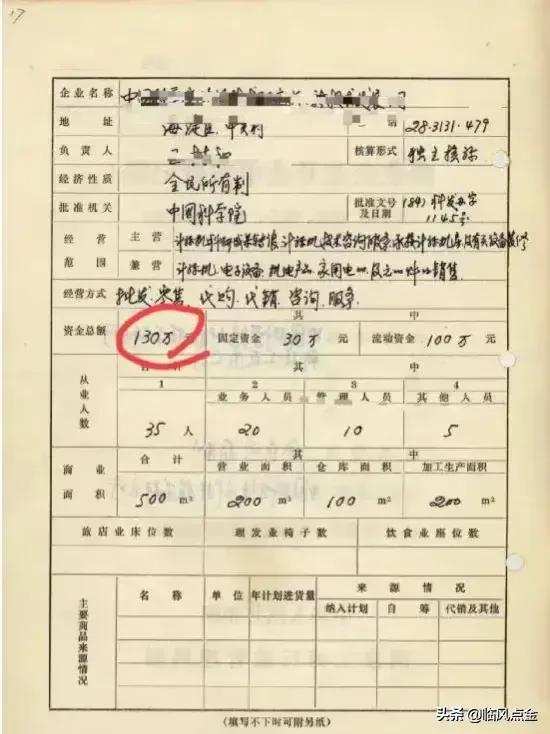 17
企业名称 中国
地址 海淀区 中关村 话 28.3131.479
负责人 核算形式 独立核标
经济性质 全民所有制
批准机关 中国科学院 批准文号及日期 (84)科发办字1145号
经营范围 主营 计标机
兼营 计标机、电子设备、机电产品、家用电 销售
经营方式 批发.零售.代购.代销.咨询.服务
资金总额 130万元 其中 固定资金 30万元 流动资金 100万元
从业人数 合计 其中
1 2 3 4
业务人员 管理人员 其他人员
35人 20 10 5
商业面积 合计 其中
营业面积 仓库面积 加工生产面积
500 m² 200 m² 100 m² 200 m²
旅店业床位数 理发业椅子数 饮食业座位数
主要商品来源情况 名称 单位 年计划进货量 来源情况
纳入计划 自筹 代销及其他
(填写不下时可附另纸)
头条 @临风点金